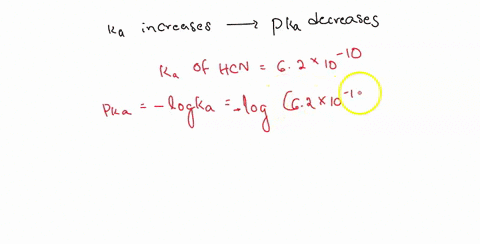 Ka increases ⟶ pKa decreases
Ka of HCN = 6.2 × 10⁻¹⁰
PKa = -logKa = -log (6.2 × 10⁻¹⁰